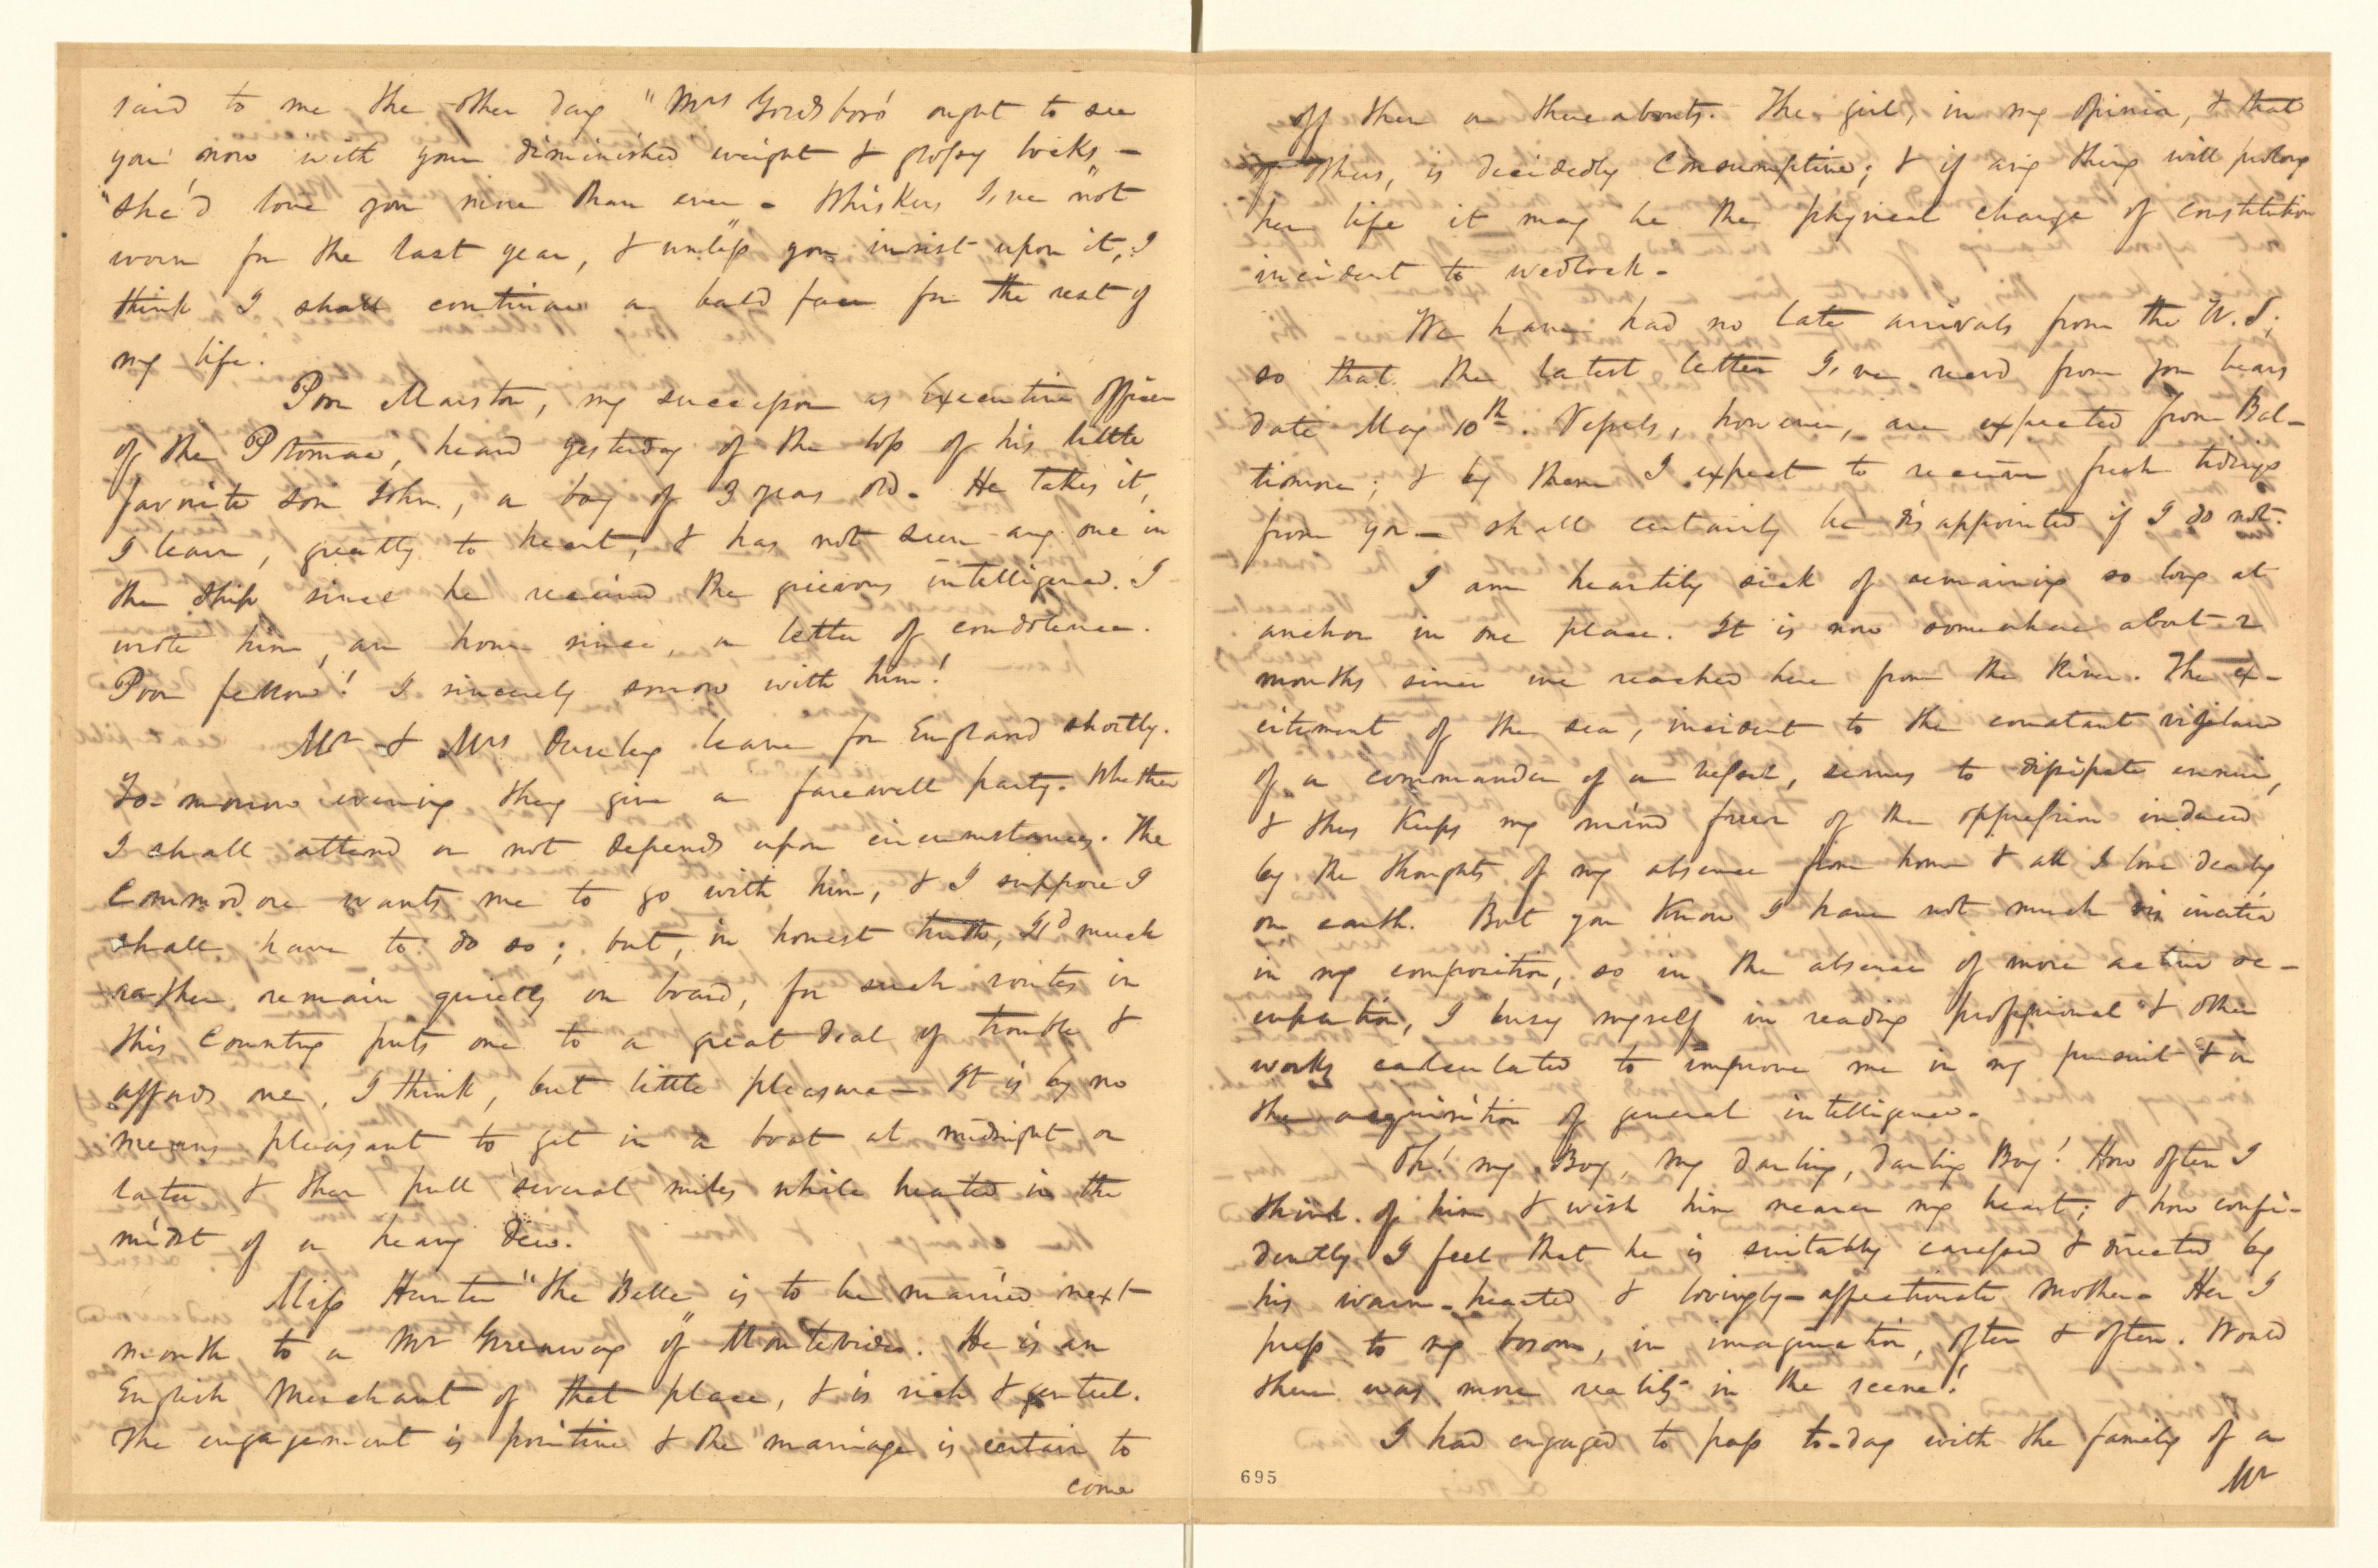 said to me the other day "Mrs Goldsboro' ought to see
you now with your diminished weight & glossy locks -
"she'd love you more than ever - Whiskers I've not
worn for the last year, & unless you insist upon it, I
think I shall continue a bald face for the rest of
my life.
Poor Marston, my successor as Executive Officer
of the Potomac, heard yesterday of the loss of his little
favorite son John, a boy of 3 years old. He takes it,
I learn, greatly to heart, & has not seen any one in
the ship since he received the grievous intelligence. I
wrote him, an hour since, a letter of condolence.
Poor fellow! I sincerely sorrow with him!
Mr & Mrs Ouseley leave for England shortly.
To-morrow evening they give a farewell party. Whether
I shall attend or not depends upon circumstances. The
Commodore wants me to go with him, & I suppose I
shall have to do so; but, in honest truth, I'd much
rather remain quietly on board, for such routes in
this Country puts one to a great deal of trouble &
affords one, I think, but little pleasure - It is by no
means pleasant to get in a boat at midnight or
later & then pull several miles while heated in the
midst of a heavy dew.
Miss Hunter "the Belle" is to be married next
month to a Mr Greenway of Montevideo. He is an
English Merchant of that place, & is rich & genteel.
The engagement is positive & the marriage is certain to
come
off then or thereabouts. The girl, in my opinion, & that
of others, is decidedly Consumptive; & if any thing will prolong
her life it may be the physical change of constitution
incident to wedlock -
We have had no late arrivals from the U.S;
so that the latest letter I've recd from you bears
date May 10th. Vessels, however, are expected from Bal-
timore; & by them I expect to receive fresh tidings
from you - shall certainly be disappointed if I do not.
I am heartily sick of remaining so long at
anchor in one place. It is now somewhere about 2
months since we reached here from the River. The ex-
citement of the sea, incident to the constant vigilance
of a commander of a vessel, serves to dissipate ennui,
& thus keeps my mind freer of the oppression induced
by the thoughts of my absence from home & all I love dearly
on earth. But you know I have not much vis inertia
in my composition, so in the absence of more active oc-
cupation, I busy myself in reading professional & other
works calculated to improve me in my pursuit & in
the acquisition of general intelligence -
Oh! my Boy, my darling, darling Boy! How often I
think of him & wish him nearer my heart; & how confi-
dently I feel that he is suitably caressed & directed by
his warm-hearted & lovingly-affectionate Mother - Her I
press to my bosom, in imagination, often & often. Would
there was more reality in the scene!
I had engaged to pass to-day with the family of a
Mr
695